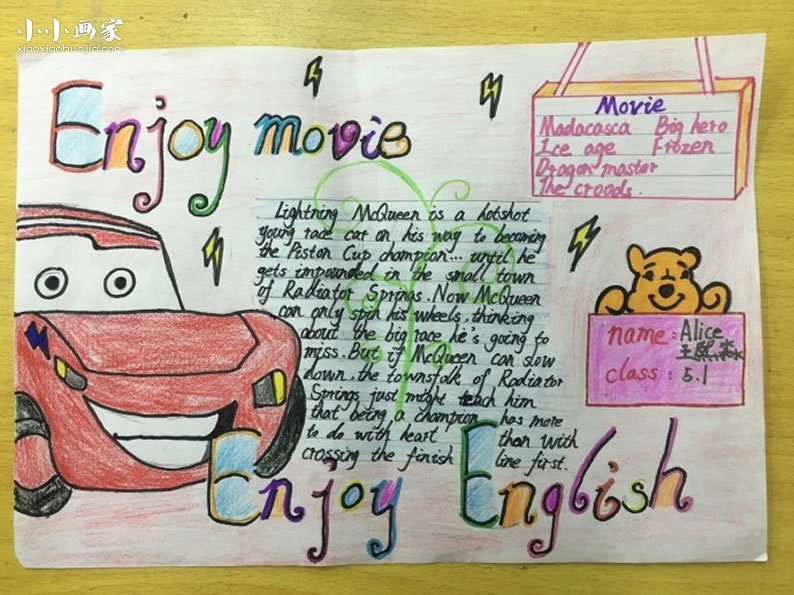 小小画家
xiaoxiaohuajia.com
Enjoy movie
Movie
Madacasca Big hero
Ice age Frozen
Dragon master
The croods.
Lightning McQueen is a hotshot
young race car on his way to becoming
the Piston Cup champion... until he
gets impounded in the small town
of Radiator Springs. Now McQueen
can only spin his wheels. thinking
about the big race he's going to
miss. But if McQueen can slow
down. the townsfolk of Radiator
Springs just might teach him
that being a champion has more
to do with heart than with
crossing the finish line first.
name: Alice
王熙
class: 5.1
Enjoy English